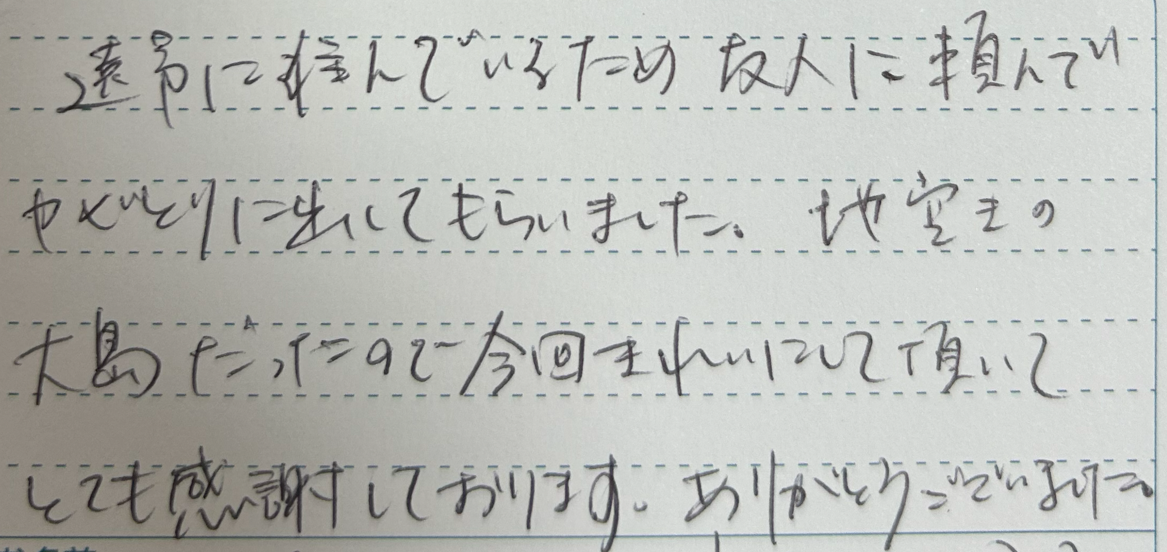 遠方に住んでいるため友人に頼んで
やくいとりに出してもらいました。地空きの
大島だったので今回きれいにして頂いて
とても感謝しております。ありがとうございました。